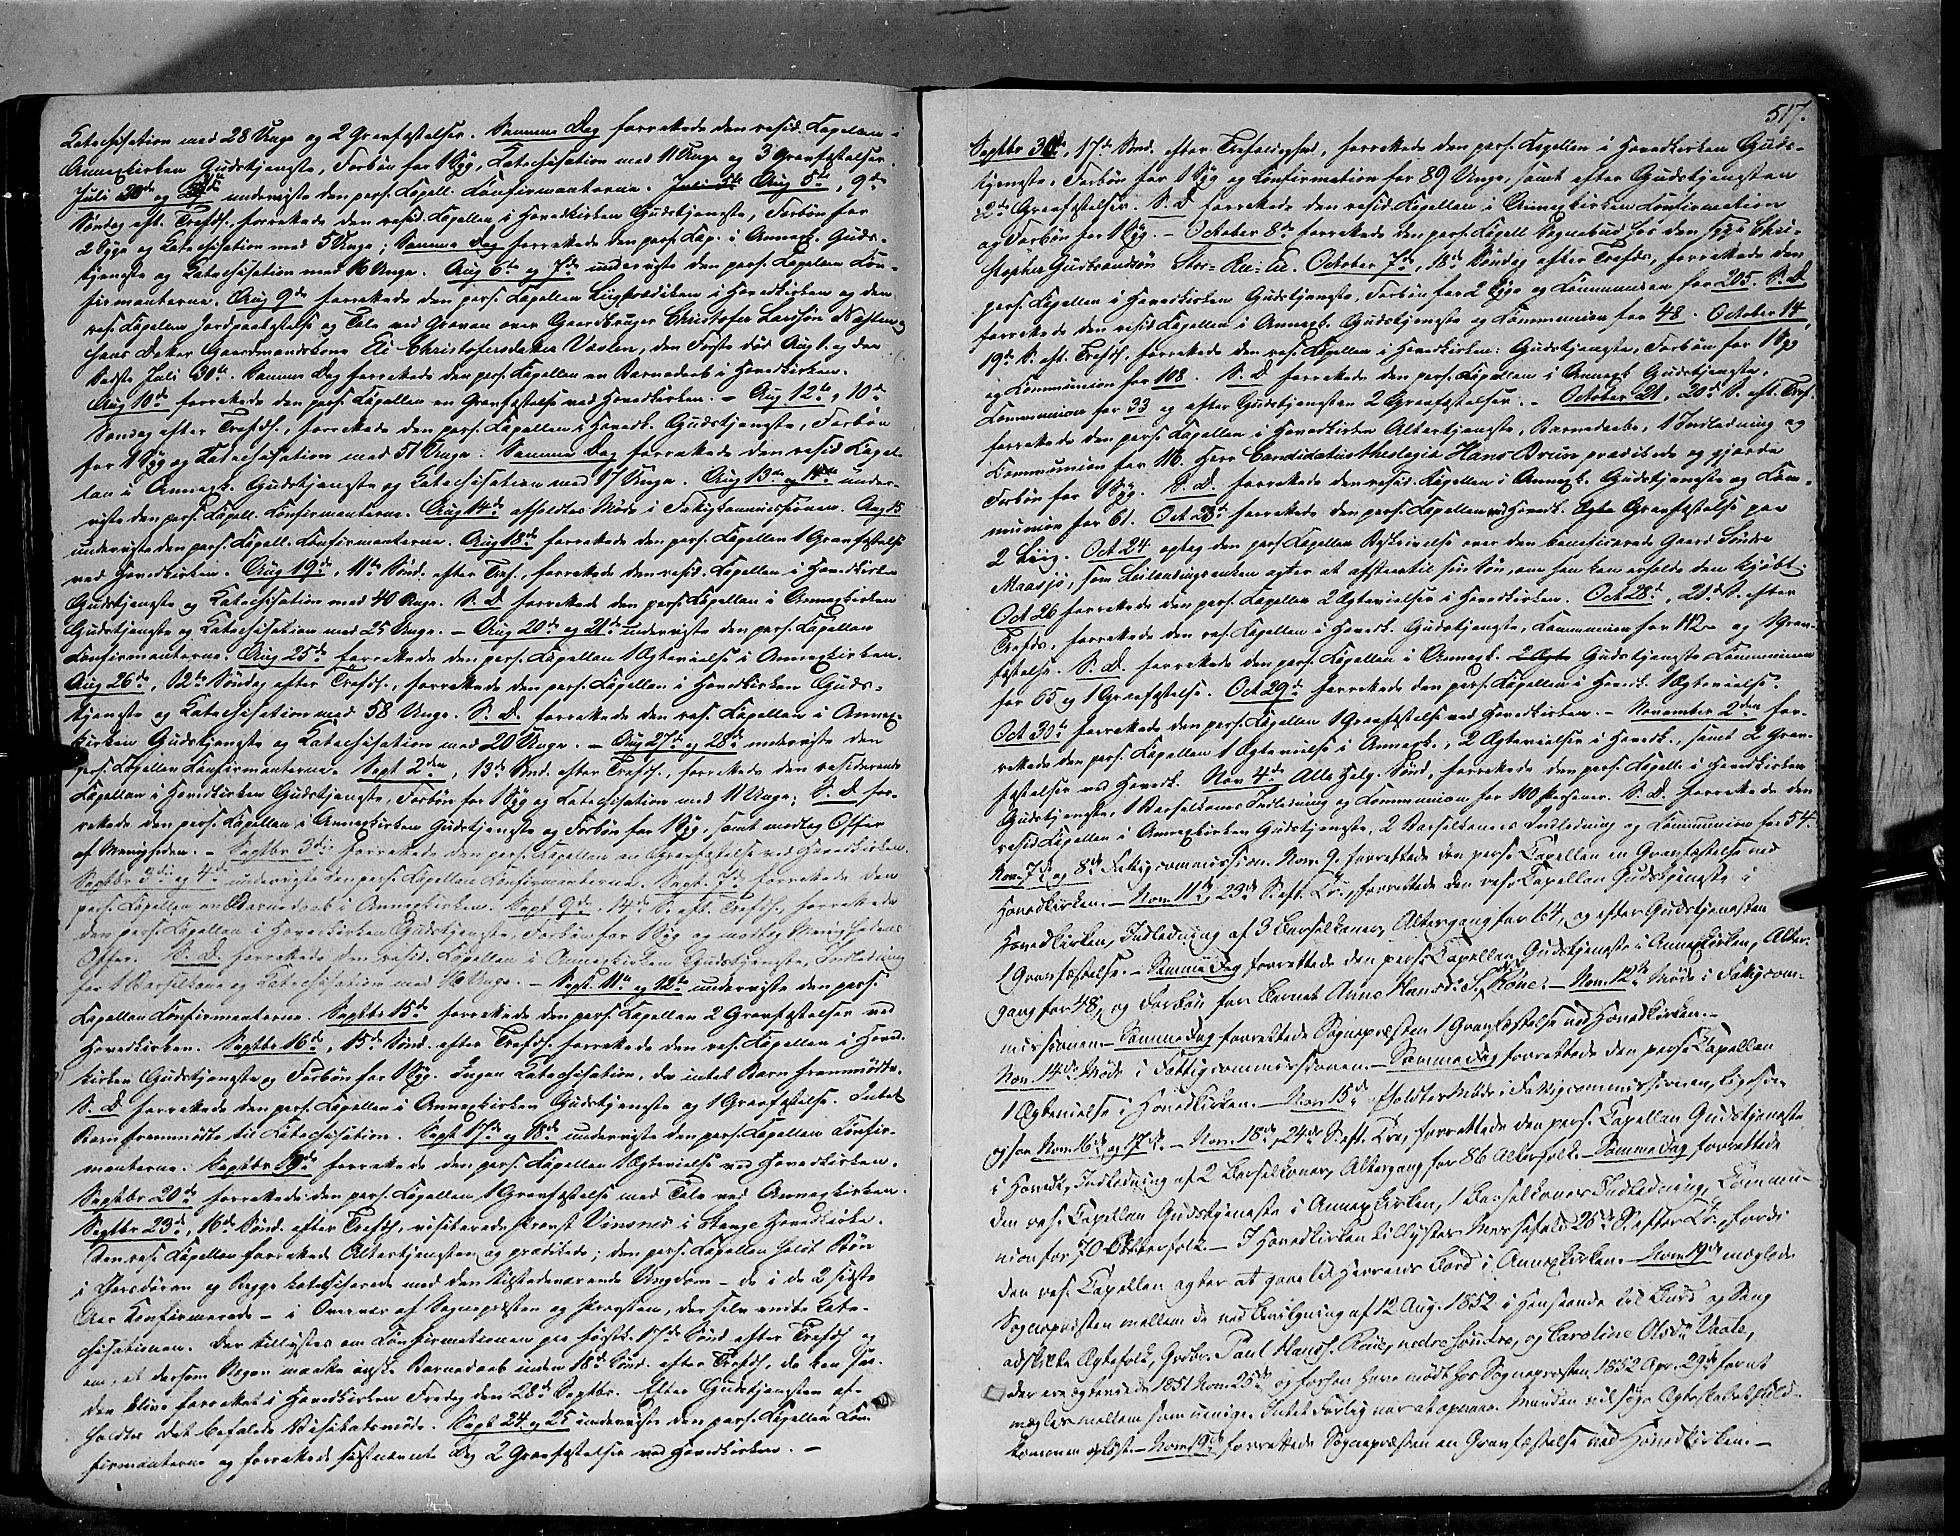 Katechisation med 28 Unge og 2 Gravfæstelser. Samme Dag forrettede den resid. Kapellan i
Annexkirken Gudstjeneste, Forbøn for 1 Syg, Katechisation med 11 Unge og 3 Gravfæstelser.
Juli 30te og underviste den pers. Kapell. Konfirmanterne. Aug 5te, 9de
Søndag eft. Trefds. forrettede den resid. Kapellan i Hovedkirken Gudstjeneste, Forbøn for
2 Syge og Katechisation med 5 Unge; Samme Dag forrettede den pers. Kap. i Annexk. Guds-
tjeneste og Katechisation med 16 Unge. Aug 6te og 7de underviste den pers. Kapellan Kon-
firmanterne. Aug 9de forrettede den pers. Kapellan Liigprædiken i Hovedkirken og den
res. Kapellan Jordpaakastelse og Tale ved Graven over Gaardbruger Christofer Larssøn og
hans Datter Gaardmandskone Eli Christofersdatter Vaalen, den Første død Aug 1. og den
Sidste Juli 30te. Samme Dag forrettede den pers. Kapellan en Barnedaab i Hovedkirken.
Aug 10de forrettede den pers. Kapellan en Gravfæstelse ved Hovedkirken. – Aug 12te, 10de
Søndag efter Trefds., forrettede den pers. Kapellan i Hovedk. Gudstjeneste, Forbøn
for 1 Syg og Katechisation med 51 Unge; Samme Dag forrettede den resid Kapel-
lan i Annexk. Gudstjeneste og Katechisation med 17 Unge. Aug 13de og 14de under-
viste den pers. Kapell. Konfirmanterne. Aug 14de afholdtes Møde i Fattigkommissionen. Aug 15
underviste den pers. Kapell. Konfirmanterne. Aug 18de forrettede den pers. Kapellan 1 Gravfæstelse
ved Hovedkirken. Aug 19de, 11te Sønd. efter Tref., forrettede den resid. Kapellan i Hovedkirken
Gudstjeneste og Katechisation med 40 Unge. S. D. forrettede den pers. Kapellan i Annexkirken
Gudstjeneste og Katechisation med 25 Unge. – Aug 20de og 21de underviste den pers. Kapellan
Konfirmanterne. Aug 25de forrettede den pers. Kapellan 1 Ægtevielse i Annexkirken.
Aug 26de, 12te Søndag efter Trefds., forrettede den pers. Kapellan i Hovedkirken Guds-
tjeneste og Katechisation med 58 Unge. S. D. forrettede den res. Kapellan i Annex-
kirken Gudstjeneste og Katechisation med 20 Unge. – Aug 27de og 28de underviste den
pers. Kapellan Konfirmanterne. Sept 2den, 13de Sønd. efter Trefds., forrettede den residerende
Kapellan i Hovedkirken Gudstjeneste, Forbøn for 1 Syg og Katechisation med 11 Unge; S. D. for-
rettede den pers. Kapellan i Annexkirken Gudstjeneste og Forbøn for 1 Syg, samt modtog Offer
af Menigheden. – Septbr 3die forrettede den pers. Kapellan en Gravfæstelse ved Hovedkirken.
Septbr 3die og 4de underviste den pers. Kapellan Konfirmanterne. Sept. 7de forrettede den
pers. Kapellan en Barnedaab i Annexkirken. Sept 9de, 14de S. eft. Trefds. forrettede
den pers. Kapellan i Hovedkirken Gudstjeneste, Forbøn for 1 Syg og modtog Menighedens
Offer. S. D. forrettede den resid. Kapellan i Annexkirken Gudstjeneste, Indledning
for 1 Barselkone og Katechisation med 16 Unge. – Sept. 11te og 12te underviste den pers.
Kapellan Konfirmanterne. Septbr 15de forrettede den pers. Kapellan 2 Gravfæstelser ved
Hovedkirken. Septbr 16de, 15de Sønd. efter Trefds. forrettede den res. Kapellan i Hoved-
kirken Gudstjeneste og Forbøn for 1 Syg. Ingen Katechisation, da intet Barn fremmødte.
S. D. forrettede den pers. Kapellan i Annexkirken Gudstjeneste og 1 Gravfæstelse. Intet
Barn fremmødte til Katechisation. Sept 17de og 18de underviste den pers. Kapellan Konfir-
manterne. Septbr forrettede den pers. Kapellan 1 Ægtevielse ved Hovedkirken.
Septbr 20de forrettede den pers. Kapellan 1 Gravfæstelse med Tale ved Annexkirken.
Septbr 23de, 16de Sønd. efter Trefds., visiterede Provst Vinsnes i Stange Hovedkirke.
Den res. Kapellan forrettede Altertjenesten og prædikede; den pers. Kapellan holdt Bøn
i Chordøren og Begge katechiserede med den tilstedeværende Ungdom – de i de 2 sidste
Aar Konfirmerede – i Overvær af Sognepræsten og Provsten, der selv endte Kate-
chisationen. Der tillystes om Konfirmationen paa førstk. 17de Sønd. efter Trefds og
om, at dersom Nogen maatte ønske Barnedaab inden 18de Sønd. efter Trefds, da kan saa-
dan blive forrettet i Hovedkirken Fredag den 28de Septbr. Efter Gudstjenesten af-
holdtes det befalede Visitatsmøde. Sept 24 og 25 underviste den pers. Kapellan Kon-
firmanterne og forrettede sidstnævnte Dag 2 Gravfæstelser ved Hovedkirken. –
517.
Septbr 30te, 17de Sønd. efter Trefoldighed, forrettede den pers. Kapellan i Hovedkirken Guds-
tjeneste, Forbøn for 1 Syg og Confirmation for 89 Unge, samt efter Gudstjenesten
2de Gravfæstelser. S. D. forrettede den resid. Kapellan i Annexkirken Confirmation
og Forbøn for 1 Syg. – October 8de forrettede den pers. Kapell. Sognebud hos den syge Chri-
stopher Gulbrandsøn Stor-Rei-Ei. October 7de, 18de Søndag efter Trefds, forrettede den
pers. Kapellan i Hovedkirken Gudstjeneste, Forbøn for 2 Syge og Kommunion for 205. S. D
forrettede den resid Kapellan i Annexk. Gudstjeneste og Kommunion for 48. October 14,
19de S. eft. Trefds. forrettede den res. Kapellan i Hovedkirken: Gudstjeneste, Forbøn for 1 Syg
og Kommunion for 108. S. D forrettede den pers. Kapellan i Annexk Gudstjeneste,
Kommunion for 33 og efter Gudstjenesten 2 Gravfæstelser. – October 21, 20de S. eft. Tref.
forrettede den pers. Kapellan i Hovedkirken Altertjeneste, Barnedaab, 1 Indledning og
Kommunion for 116. Herr Candidatus theologiæ Hans Brun prædikede og gjorde
Forbøn for 1 Syg. S. D. forrettede den resid. Kapellan i Annexk. Gudstjeneste og Kom-
munion for 61. Oct 23de forrettede den pers. Kapellan ved Hovedk. Gravfæstelse paa
2 Liig. Oct 24 optog den pers. Kapellan Beskrivelse over den beneficerede Gaard Søndre
Maasjø, som Leilendingsenken agter at afstaa til sin Søn, om han kan erholde den kjøbt.
Oct 26 forrettede den pers. Kapellan 2 Ægtevielser i Hovedkirken. Oct 28de, 21de S. efter
Trefds, forrettede den res. Kapellan i Hovedk. Gudstjeneste, Kommunion for 112 og 1 Grav-
fæstelse. S. D. forrettede den pers. Kapellan i Annexk. Gudstjeneste Kommunion
for 65 og 1 Gravfæstelse. Oct 29de forrettede den pers. Kapellan i Hovedk. 1 Ægtevielse.
Oct 30te forrettede den pers. Kapellan 1 Gravfæstelse ved Hovedkirken. – November 2den for-
rettede den pers. Kapellan 1 Ægtevielse i Annexk., 2 Ægtevielser i Hovedk., samt 2 Grav-
fæstelser ved Hovedk. Nov 4de Alle Helg. Sønd, forrettede den pers. Kapell. i Hovedkirken
Gudstjeneste, 1 Barselkones Indledning og Kommunion for 100 Personer. S. D. forrettede den
resid Kapellan i Annexkirken Gudstjeneste, 2 Barselkoners Indledning og Kommunion for 54.
Nov. 7de og 8de Fattigcommission. Nov. 9. forrettede den pers. Capellan en Gravfæstelse ved
Hovedkirken. – Nov. 11te, 23de S. eft. Tr., forrettede den res. Capellan Gudstjeneste i
Hovedkirken, Indledning af 3 Barselkoner, Altergang for 64, og efter Gudstjenesten
1 Gravfæstelse. – Samme Dag forrettede den pers. Capellan Gudstjeneste i Annexkirken, Alter-
gang for 48, og Forbøn for Barnet Anne Hansd. S. Røne. – Nov. 12te Møde i Fattigcom-
missionen. – Samme Dag forrettede Sognepræsten 1 Gravfæstelse ved Hovedkirken. –
Nov. 14de Møde i Fattigcommissionen. – Samme Dag forrettede den pers. Capellan
1 Ægtevielse i Hovedkirken. – Nov. 15de holdtes Møde i Fattigcommissionen, ligesaa
ogsaa Nov. 16de og 17de. – Nov. 18de, 24de S. eft. Tre, forrettede den pers. Capellan Gudstjeneste
i Hovedk, Indledning af 2 Barselkoner, Altergang for 86 Alterfolk. – Samme Dag forrettede
den res. Capellan Gudstjeneste i Annexkirken, 1 Barselkones Indledning, Commu-
nion for 70 Alterfolk. – I Hovedkirken tillystes Messefald 26de S. efter Tr., fordi
den res. Capellan agter at gaae til Herrens Bord i Annexkirken. – Nov. 19de mæglede
Sognepræsten mellem de ved Bevilgning af 12 Aug. 1852 i Henseende til Bord og Seng
adskilte Ægtefolk, Grdbr. Paul Hans. Røne, nedre søndre, og Caroline Olsdr Vaale,
der ere ægteviede 1851 Nov. 25de og forhen have mødt hos Sognepræsten 1852 Apr. 29de for at
mægles mellem som uenige. Intet Forlig var at opnaae. Manden vil søge Ægteskabet fuld-
kommen opløst. – Nov. 19de forrettede Sognepræsten en Gravfæstelse ved Hovedkirken. –